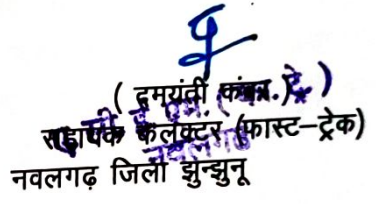 ( दमयंती कंवर )
सहायक कलेक्टर (फास्ट-ट्रेक)
नवलगढ़ जिला झुन्झुनू